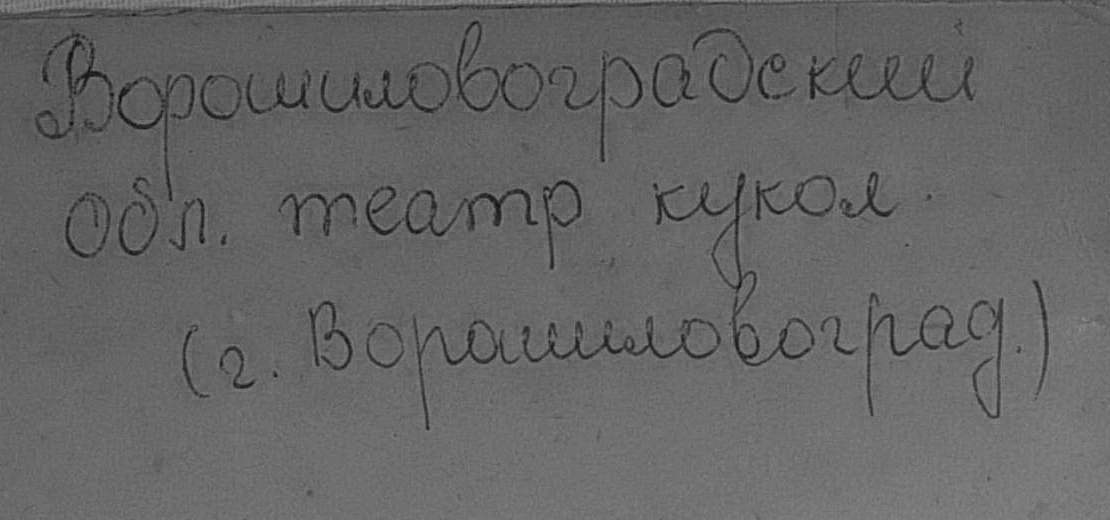 Ворошиловоградский
обл. театр кукол.
(г. Ворошиловоград.)